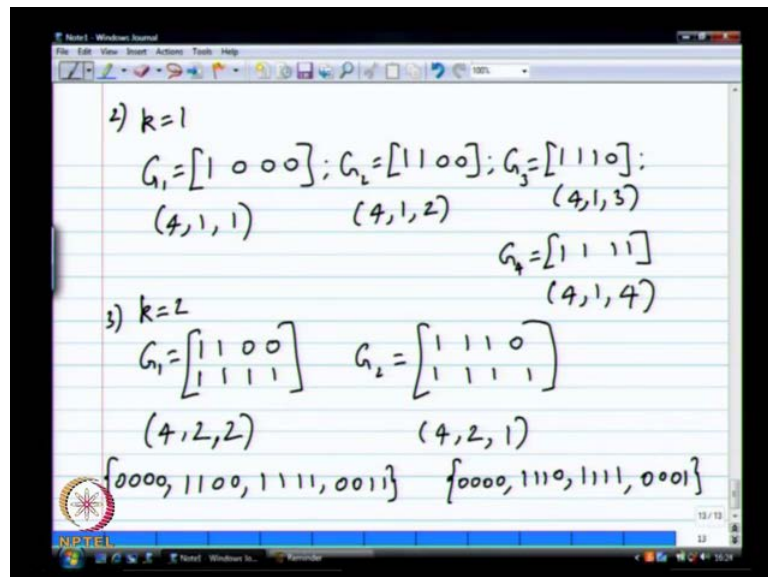 Note1 - Windows Journal
File Edit View Insert Actions Tools Help
100%
2) k=1
G₁=[1 0 0 0]; G₂=[1 1 0 0]; G₃=[1 1 1 0];
(4,1,1) (4,1,2) (4,1,3)
G₄=[1 1 1 1]
(4,1,4)
3) k=2
G₁=[1 1 0 0 G₂=[1 1 1 0
1 1 1 1] 1 1 1 1]
(4,2,2) (4,2,1)
{0000, 1100, 1111, 0011} {0000, 1110, 1111, 0001}
13/13
NPTEL
13
Note1 - Windows Jo... Reminder 16:24